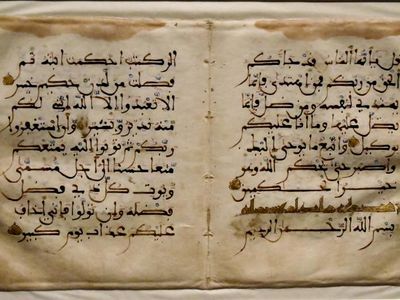 قل يأيها الناس قد جاكم
الحق من ربكم فمن اهتدى فإنما
يهتدي لنفسه ومن ضل فإنما
يضل عليها وما أنا عليكم
بوكيل واتبع ما يوحى إليك
واصبر حتى يحكم الله وهو
خير الحكمين
بسم الله الرحمن الرحيم
الر كتب أحكمت ايته ثم
فصلت من لدن حكيم خبير
ألا تعبدوا إلا الله إنني لكم
منه نذير وبشير وأن استغفروا
ربكم ثم توبوا إليه يمتعكم
متعا حسنا إلى أجل مسمى
ويوت كل ذي فضل
فضله وإن تولوا فإني أخاف
عليكم عذاب يوم كبير